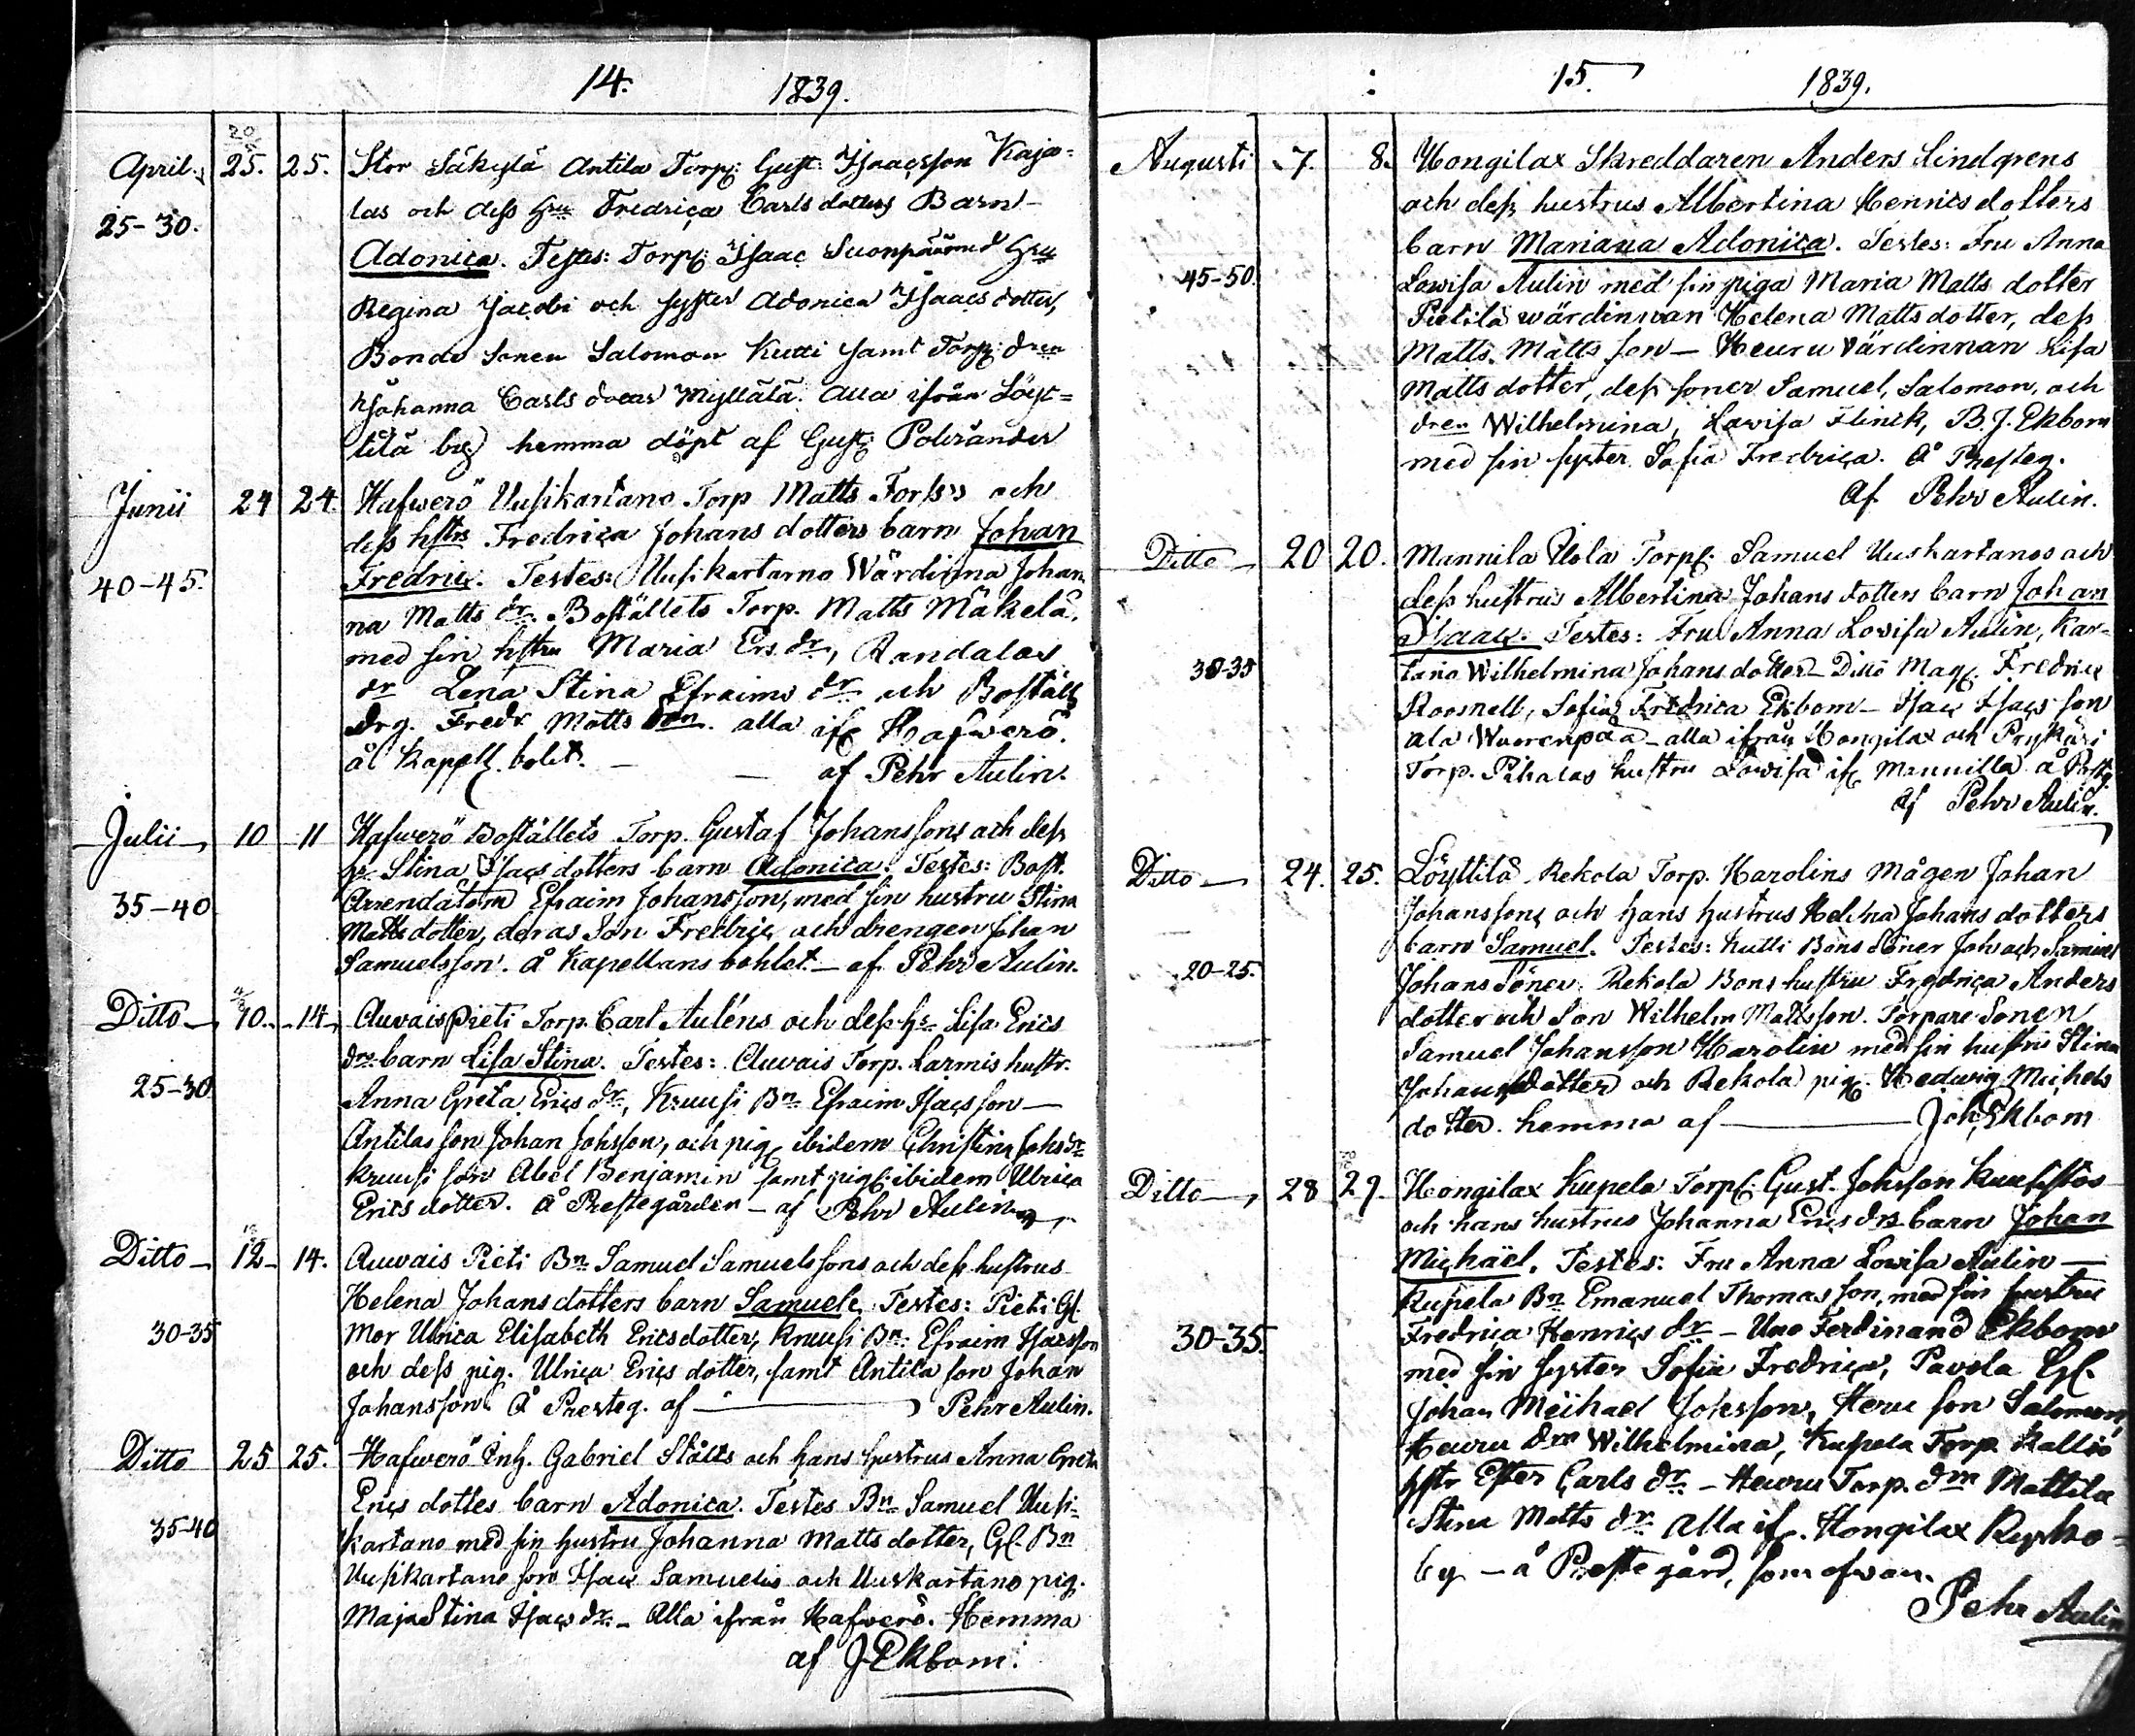 14. 1839.
April. 25. 25. Stor Säkylä Antila Torp: Gust: Isaacsson Kaja=
25-30. las och dess hru Fredrica Carls dotters Barn
Adonica. Testes: Torp: Isaac Suonpää med hru
Regina Jacobi och syster Adonica Isaacs dotter,
Bonde Sonen Salomon Kutti samt Torp: dren
Johanna Carls Myllälä. Alla ifrån Löyt=
tilä by) hemma döpt af Gust: Polviander
Junii 24 24. Hafwerö Uusikartano Torp Matts Forss's och
dess hstrs Fredrica Johans dotters barn Johan
40-45. Fredric. Testes: Uusikartano Wärdinna Johan
na Matts dr. Boställets Torp. Matts Mäkelä.
med sin hstru Maria Ers. dr, Randalas
dr Lena Stina Efraims dr och Boställs
drg. Fredr Matts son. alla ifr Hafwerö.
å Kapell. bolet. — — af Pehr Aulin.
Julii 10 11 Hafwerö Boställets Torp. Gustaf Johanssons och dess
hs. Stina Isacs dotters barn Adonica. Testes: Bost.
35-40 Arrendatorn Efraim Johansson, med sin hustru Stina
Matts dotter, deras Son Fredric och drengen Johan
Samuelsson. å Kapellans bohlet. — af Pehr Aulin.
Ditto 10. 14 Auvais Pieti Torp. Carl Auléns och dess hs. Lisa Erics
drs barn Lisa Stina. Testes: Auvais Torp. Larmis hustr.
25-30 Anna Greta Erics dr, Kruusi Bn Efraim Isacsson —
Antilas son Johan Johsson, och pig. ibidem Christina Johs dr
Kruusi son Abel Benjamin samt pig. ibidem Ulrica
Erics dotter. å Prestegården — af Pehr Aulin
Ditto 12 14. Auvais Pieti Bn Samuel Samuelssons och dess hustrus
Helena Johans dotters barn Samuel. Testes: Pieti Gl.
30-35 Mor Ulrica Elisabeth Ericsdotter, Kruusi Bn. Efraim Isacsson
och dess pig. Ulrica Erics dotter, samt Antila son Johan
Johansson. å Presteg. af — Pehr Aulin.
Ditto 25 25. Hafwerö Inh. Gabriel Ståtts och hans hustrus Anna Greta
Erics dotters barn Adonica. Testes Bn Samuel Uusi-
35-40 kartano med sin hustru Johanna Matts dotter, Gl. Bn
Uusikartano son Isac Samuels och Uuskartano pig.
Maja Stina Isacs dr. — Alla ifrån Hafwerö. Hemma
af J. Ekbom.
15. 1839.
Augusti 7. 8. Hongilax Skreddaren Anders Lindgrens
och dess hustrus Albertina Henricsdotters
barn Mariana Adonica. Testes: Fru Anna
45-50. Lowisa Aulin med sin piga Maria Matts dotter
Pietilä wärdinnan Helena Mattsdotter, dess
Matts Matts son — Heuru värdinnan Lisa
Matts dotter, dess soner Samuel, Salomon, och
dren Wilhelmina, Lovisa Flinck, B. J. Ekbom
med sin syster Sofia Fredrica. å Presteg.
Af Pehr Aulin.
Ditto 20 20. Mannila Uola Torp: Samuel Uuskartanos och
dess hustrus Albertina Johans dotters barn Johan
Isaac. Testes: Fru Anna Lovisa Aulin, Kar-
30-35 tano Wilhelmina Johans dotter — Ditto Mag. Fredric
Roosnell, Sofia Fredrica Ekbom — Isac Isacs son
ala Wuorenpää — alla ifrån Hongilax och
Torp. Pihalas hustru Lovisa ifr Mannilla å Prestg.
Af Pehr Aulin.
Ditto 24. 25. Löyttilä Rekola Torp. Karolins Mågen Johan
Johanssons och hans hustrus Helena Johans dotters
barn Samuel. Testes: Kutti Bons Söner Joh och Samuel
20-25. Johans Söner Rekola Bons hustru Fredrica Anders
dotter och Son Wilhelm Mattsson. Torpare Sonen
Samuel Johansson Karolin med sin hustru Stina
Johans dotter och Rekola pig. Hedwig Michels
dotter. hemma af — Joh. Ekbom
Ditto 28 29. Hongilax Kupela Torp: Gust. Johsson Kuusistos
och hans hustrus Johanna Erics drs barn Johan
Michäel. Testes: Fru Anna Lowisa Aulin —
Kupela Bn Emanuel Thomasson, med sin hustru
30-35. Fredrica Henrics dr — Uno Ferdinand Ekbom
med sin syster Sofia Fredrica, Pavola Gl.
Johan Michael Johsson, Heru son Salomon,
Heuru drn Wilhelmina, Kupela Torp. Kallio
hstr Ester Carls dr. — Heuru Torp. drn Mattila
Stina Matts dr. Alla ifr. Hongilax
by — å Prestegård, som ofwan.
Pehr Aulin